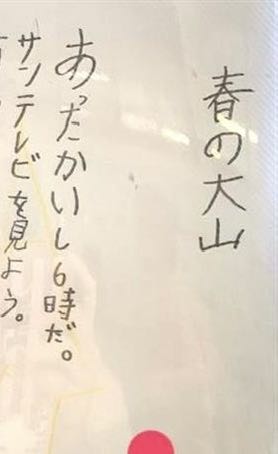 春の大山
あったかいし6時だ。
サンテレビを見よう。